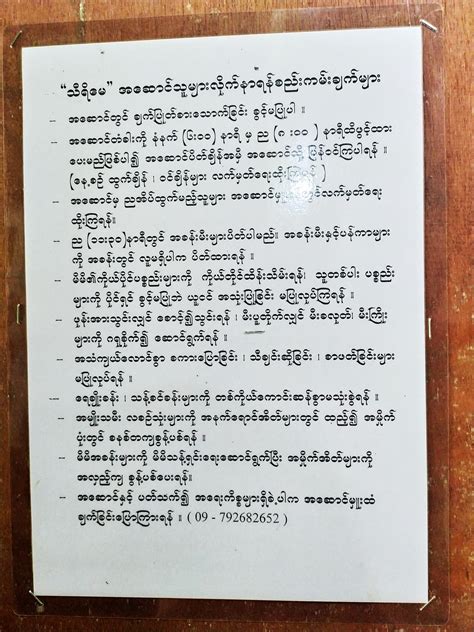 “သီရိမေ” အဆောင်သူများလိုက်နာရန်စည်းကမ်းချက်များ
– အဆောင်တွင် ချက်ပြုတ်စားသောက်ခြင်း ခွင့်မပြုပါ ။
– အဆောင်တံခါးကို နံနက် (၆:၀၀) နာရီ မှ ည (၈ : ၀၀ ) နာရီထိဖွင့်ထား
ပေးမည်ဖြစ်ပါ၍ အဆောင်ပိတ်ချိန်အမှီ အဆောင်သို့ ပြန်ဝင်ကြပါရန် ။
(နေ့စဉ် ထွက်ချိန် ၊ ဝင်ချိန်များ လက်မှတ်ရေးထိုးကြရန် )
– အဆောင်မှ ညအိပ်ထွက်မည့်သူများ အဆောင်မှူးထံတွင်လက်မှတ်ရေး
ထိုးကြရန်။
– ည (၁၁:၃၀)နာရီတွင် အခန်းမီးများပိတ်ပါမည်။ အခန်းမီးနှင့်ပန်ကာများ
ကို အခန်းတွင် လူမရှိပါက ပိတ်ထားရန် ။
– မိမိ၏ကိုယ်ပိုင်ပစ္စည်းများကို ကိုယ်တိုင်ထိန်းသိမ်းရန်၊ သူတစ်ပါး ပစ္စည်း
များကို ပိုင်ရှင် ခွင့်မပြုဘဲ ယူငင် အသုံးပြုခြင်း မပြုလုပ်ကြရန် ။
– ဖုန်းအားသွင်းလျှင် စောင့်၍သွင်းရန် ၊ မီးပူတိုက်လျှင် မီးခလုတ်၊ မီးကြိုး
များကို ဂရုစိုက်၍ ဆောင်ရွက်ရန် ။
– အသံကျယ်လောင်စွာ စကားပြောခြင်း ၊ သီချင်းဆိုခြင်း ၊ စာဖတ်ခြင်းများ
မပြုလုပ်ရန် ။
– ရေချိုးခန်း ၊ သန့်စင်ခန်းများကို တစ်ကိုယ်ကောင်းဆန်စွာမသုံးစွဲရန် ။
– အမျိုးသမီး လစဉ်သုံးများကို အနက်ရောင်အိတ်များတွင် ထည့်၍ အမှိုက်
ပုံးတွင် စနစ်တကျစွန့်ပစ်ရန် ။
– မိမိအခန်းများကို မိမိသန့်ရှင်းရေးဆောင်ရွက်ပြီး အမှိုက်အိတ်များကို
အလှည့်ကျ စွန့်ပစ်ပေးရန်။
– အဆောင်နှင့် ပတ်သက်၍ အရေးကိစ္စများရှိခဲ့ပါက အဆောင်မှူးထံ
ချက်ခြင်းပြောကြားရန် ။ ( 09 - 792682652 )